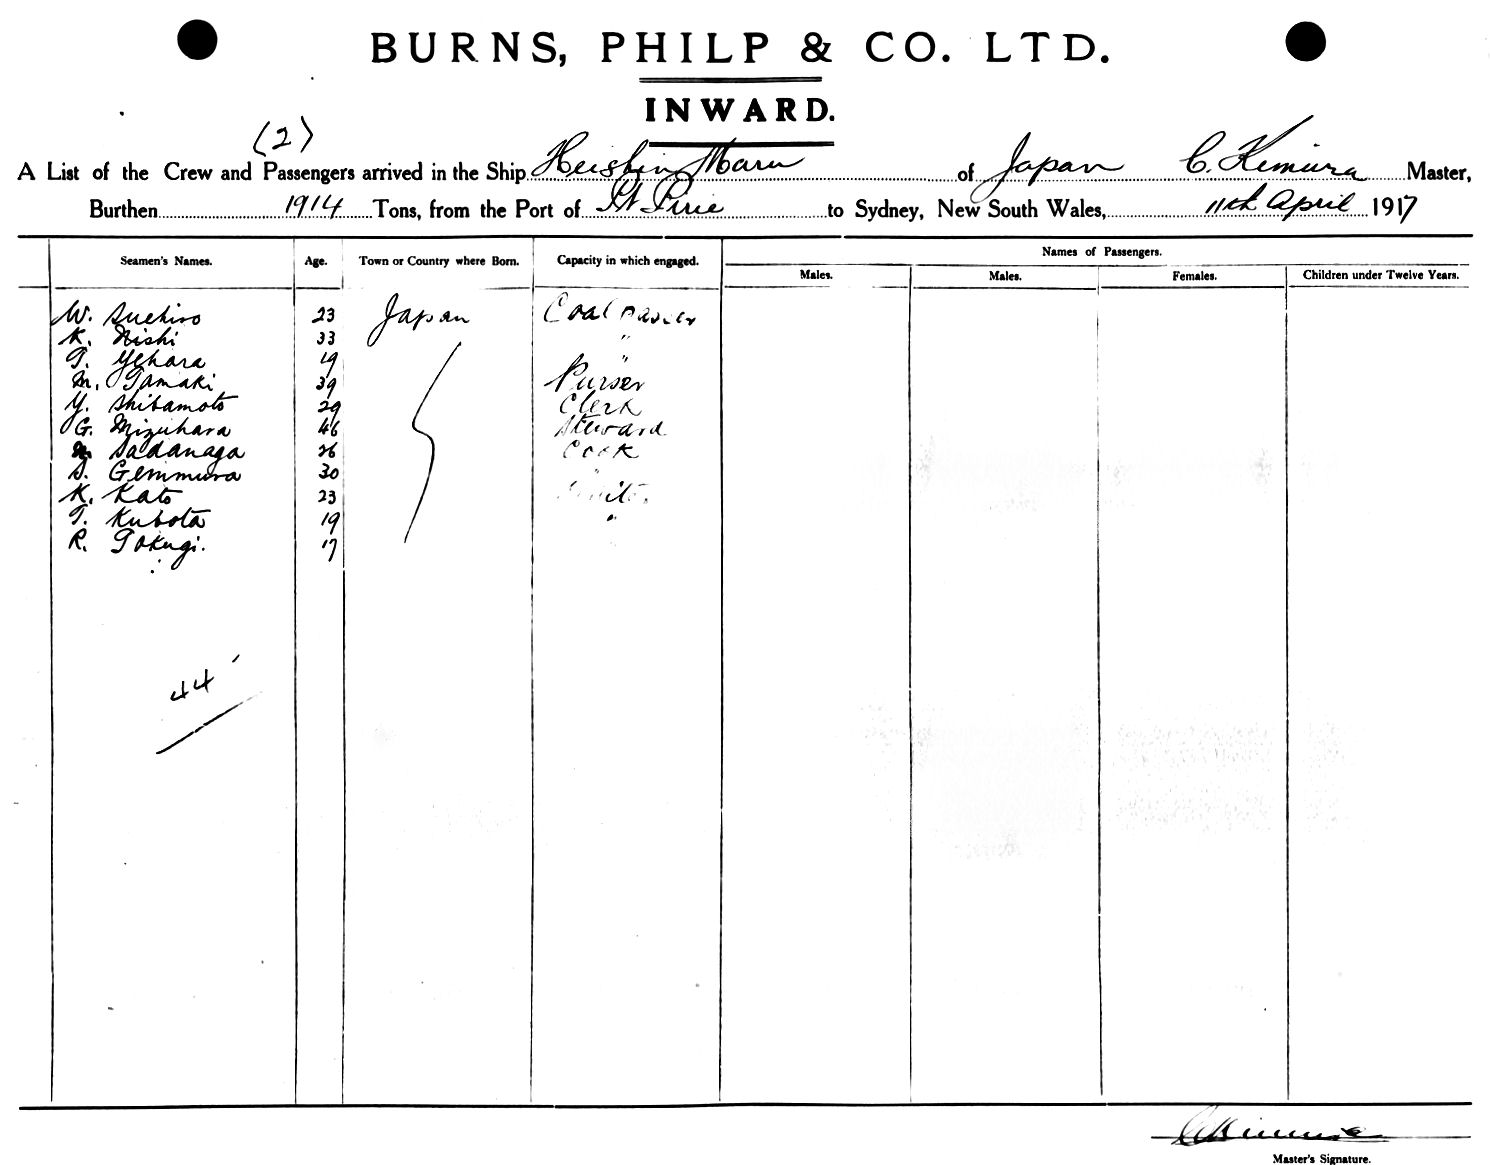 BURNS, PHILP & CO. LTD.
INWARD.
(2)
A List of the Crew and Passengers arrived in the Ship Heishin Maru of Japan C. Kimura Master,
Burthen 1914 Tons, from the Port of Pt Pirie to Sydney, New South Wales, 11th April 1917
Names of Passengers.
Seamen's Names. Age. Town or Country where Born. Capacity in which engaged. Males. Males. Females. Children under Twelve Years.
W. Suehiro 23 Japan Coal passer
K. Nishi 33 "
T. Yehara 19 "
M. Tamaki 39 Purser
Y. Shibamoto 29 Clerk
G. Mizuhara 46 Steward
M. Sadanaga 26 Cook
S. Gemmura 30 "
K. Kato 23
T. Kubota 19 "
R. Tokugi. 17
44
Master's Signature.